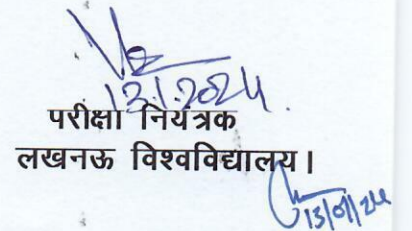 13.1.2024.
परीक्षा नियंत्रक
लखनऊ विश्वविद्यालय।
13/01/24